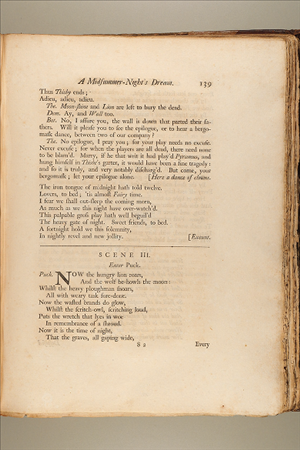 A Midsummer-Night's Dream. 139
Thus Thisby ends;
Adieu, adieu, adieu.
The. Moon-shine and Lion are left to bury the dead.
Dem. Ay, and Wall too.
Bot. No, I assure you, the wall is down that parted their fa-
thers. Will it please you to see the epilogue, or to hear a bergo-
mask dance, between two of our company?
The. No epilogue, I pray you; for your play needs no excuse.
Never excuse; for when the players are all dead, there need none
to be blam'd. Marry, if he that writ it had play'd Pyramus, and
hung himself in Thisbe's garter, it would have been a fine tragedy:
and so it is truly, and very notably discharg'd. But come, your
bergomask; let your epilogue alone. [Here a dance of clowns.
The iron tongue of midnight hath told twelve.
Lovers, to bed; 'tis almost Fairy time.
I fear we shall out-sleep the coming morn,
As much as we this night have over-watch'd.
This palpable gross play hath well beguil'd
The heavy gate of night. Sweet friends, to bed.
A fortnight hold we this solemnity,
In nightly revel and new jollity. [Exeunt.
SCENE III.
Enter Puck.
Puck. NOW the hungry lion roars,
And the wolf be-howls the moon:
Whilst the heavy ploughman snores,
All with weary task fore-done.
Now the wasted brands do glow,
Whilst the scritch-owl, scritching loud,
Puts the wretch that lyes in woe
In remembrance of a shroud.
Now it is the time of night,
That the graves, all gaping wide,
S 2 Every